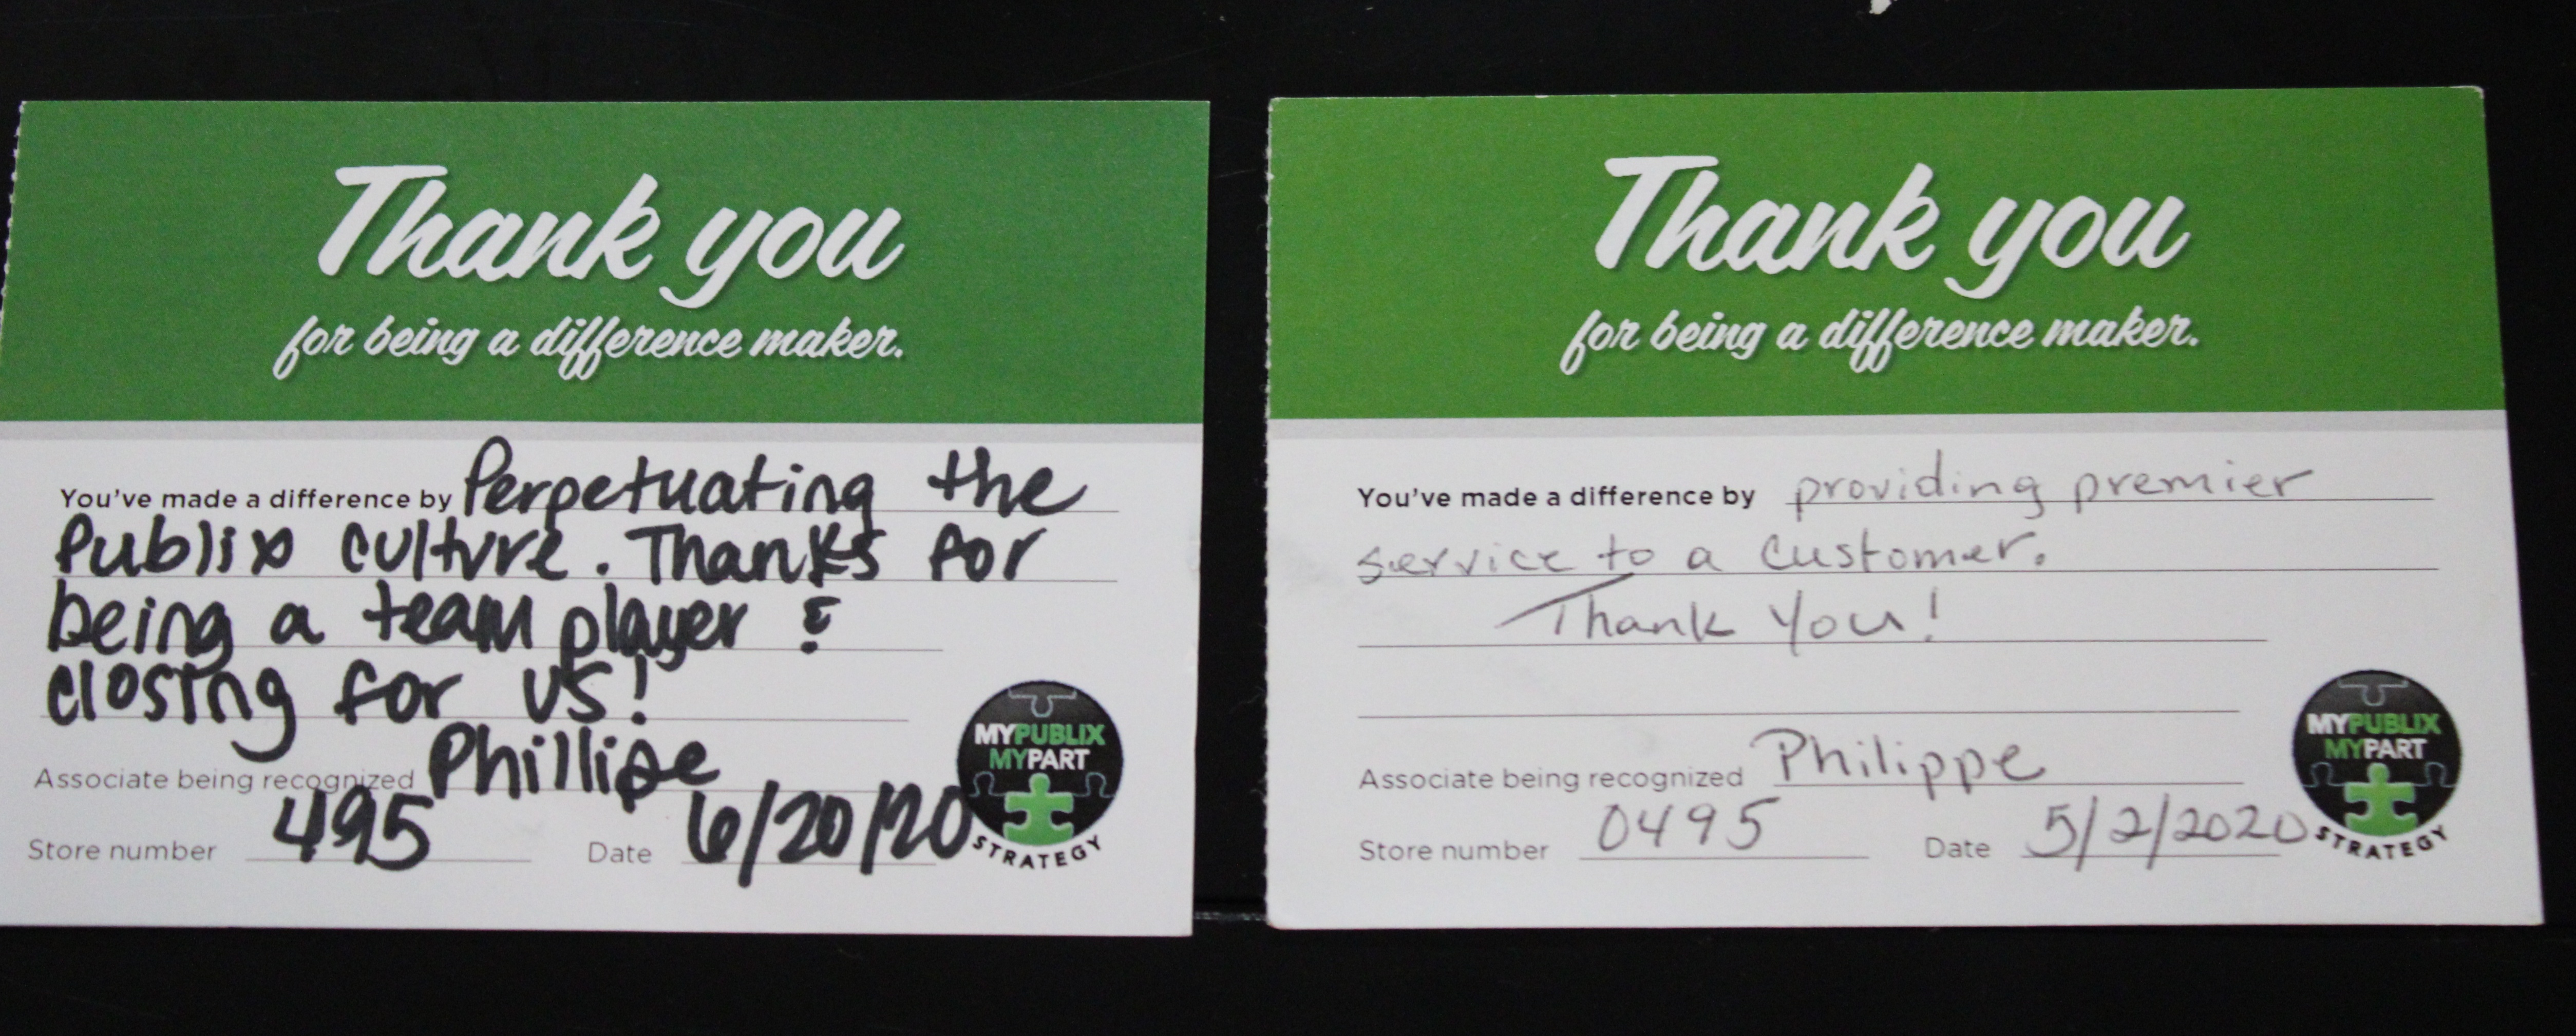 Thank you
for being a difference maker.
You've made a difference by Perpetuating the
Publix culture. Thanks for
being a team player &
closing for us!
Associate being recognized Phillipe
Store number 495 Date 6/20/20
MYPUBLIX
MYPART
STRATEGY
Thank you
for being a difference maker.
You've made a difference by providing premier
service to a customer.
Thank You!
Associate being recognized Philippe
Store number 0495 Date 5/2/2020
MYPUBLIX
MYPART
STRATEGY